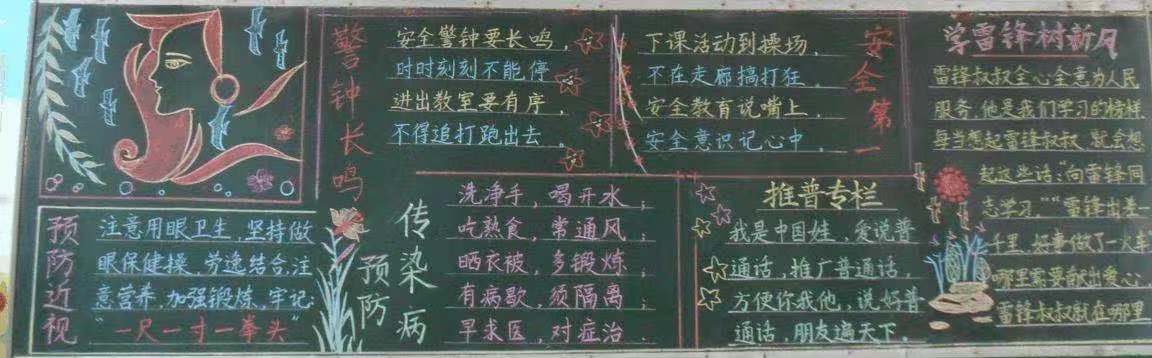 警钟长鸣
安全警钟要长鸣，
时时刻刻不能停
进出教室要有序，
不得追打跑出去。
下课活动到操场，
不在走廊搞打狂。
安全教育说嘴上，
安全意识记心中。
安全第一
学雷锋树新风
雷锋叔叔全心全意为人民
服务，他是我们学习的榜样
每当想起雷锋叔叔，就会想
起这些话：“向雷锋同
志学习，”“雷锋出差一
千里，好事做了一火车
哪里需要献出爱心，
雷锋叔叔就在哪里
预防近视
注意用眼卫生，坚持做
眼保健操，劳逸结合，注
意营养，加强锻炼，牢记：
“一尺一寸一拳头”
预防
传染病
洗净手，喝开水；
吃熟食，常通风；
晒衣被，多锻炼；
有病歇，须隔离；
早求医，对症治。
推普专栏
我是中国娃，爱说普
通话，推广普通话，
方便你我他，说好普
通话，朋友遍天下。